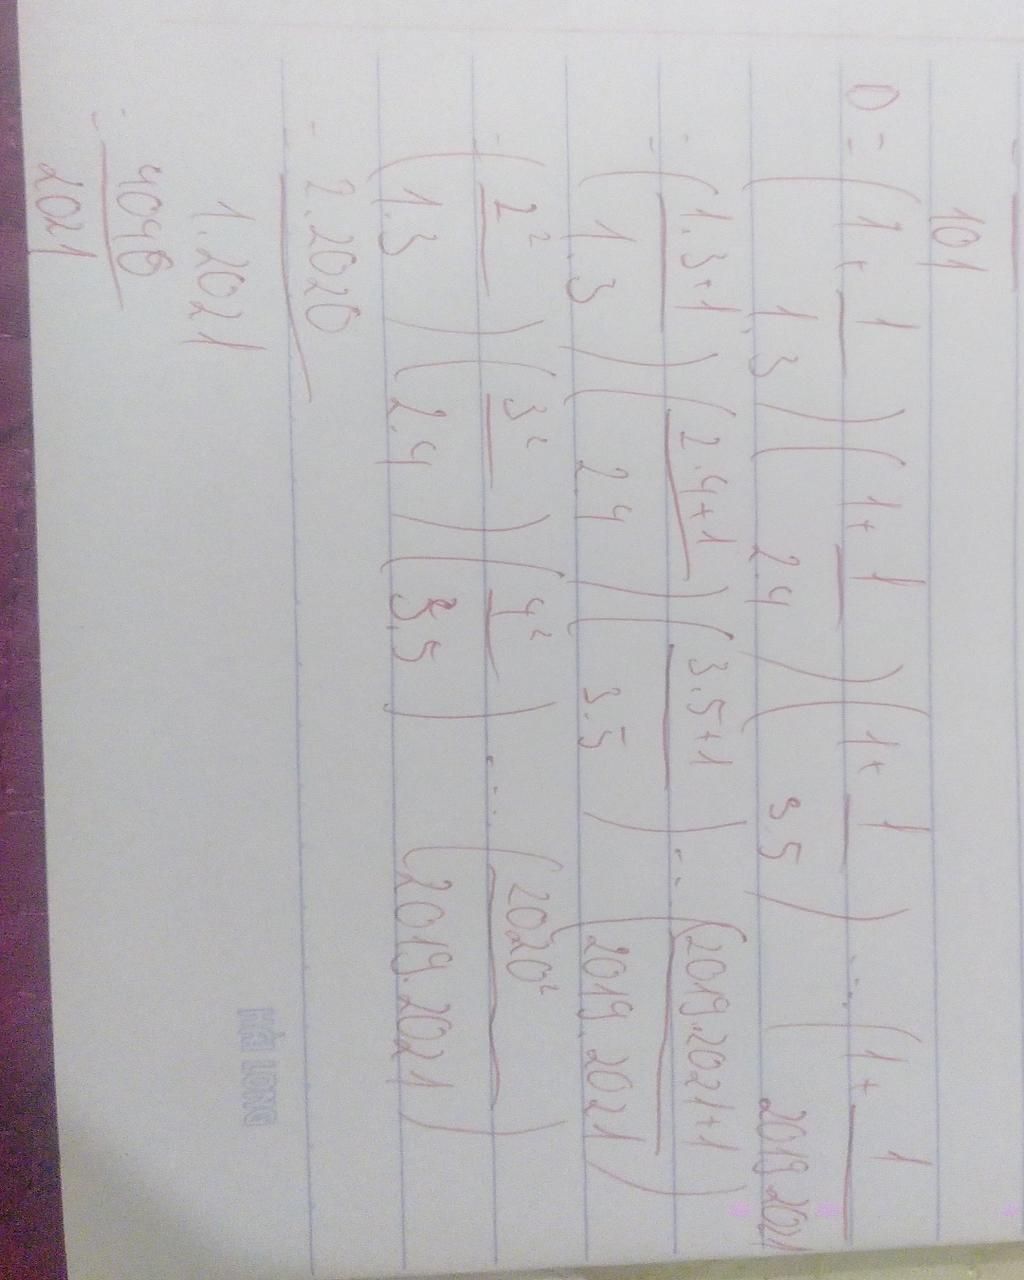 101
D = (1 + 1/1.3)(1 + 1/2.4)(1 + 1/3.5) ... (1 + 1/2019.2021)
= (1.3+1/1.3)(2.4+1/2.4)(3.5+1/3.5) ... (2019.2021+1/2019.2021)
= (2²/1.3)(3²/2.4)(4²/3.5) ... (2020²/2019.2021)
= 2.2020/1.2021
= 4040/2021
HẢI LONG